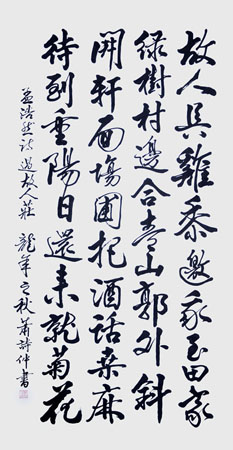 故人具雞黍邀我至田家
綠樹村邊合青山郭外斜
開軒面場圃把酒話桑麻
待到重陽日還来就菊花
孟浩然诗過故人莊 龍年之秋 蕭詩仲書